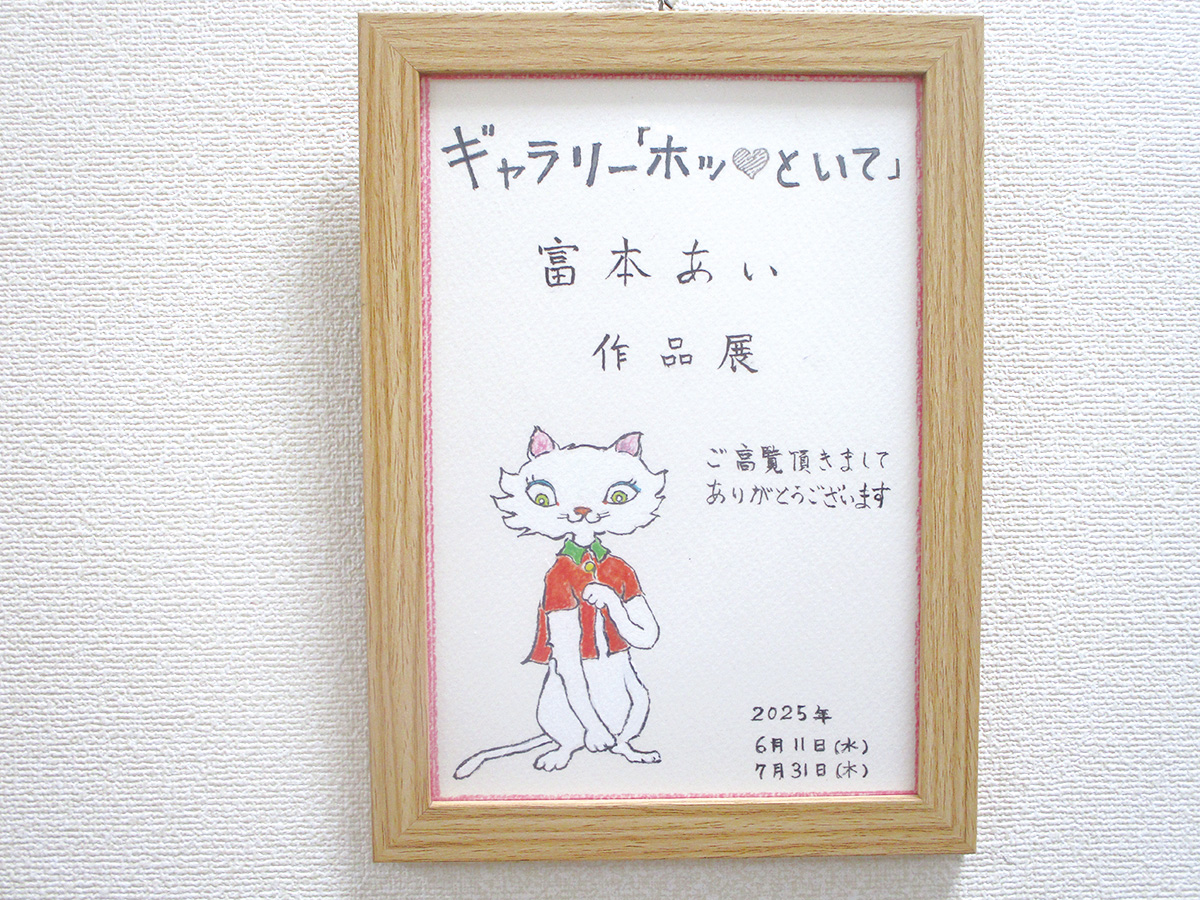 ギャラリー「ホッ♡といて」
富本あい
作品展
ご高覧頂きまして
ありがとうございます
2025年
6月11日(水)
7月31日(木)